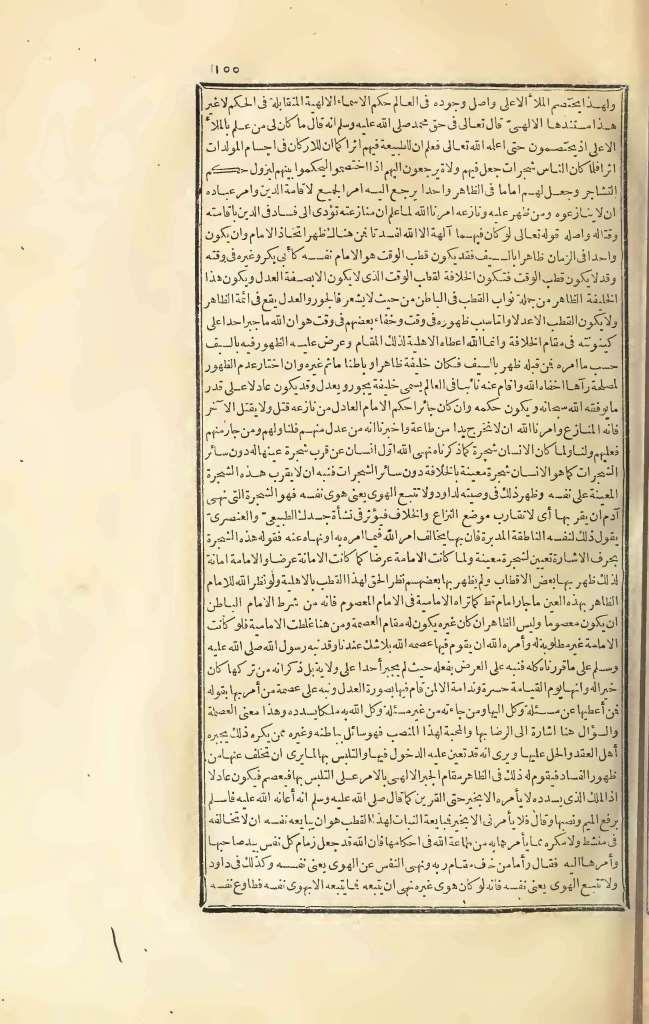 ١٥٥
ولهذا يختصم الملأ الاعلى واصل وجوده فى العالم حكم الاسماء الالهية المتقابلة فى الحكم لا غير
هذا مستندها الالهىّ قال تعالى فى حق محمد صلى الله عليه وسلم انه قال ما كان لى من علم بالملأ
الاعلى اذ يختصمون حتى اعلمه الله تعالى فعلم ان للطبيعة فيهم اثرا كما ان للاركان فى اجسام المولدات
اثرا فلما كان الناس شجرات جعل فيهم ولاة يرجعون اليهم اذا اختصموا ليحكموا بينهم ليزول حكم
التشاجر وجعل لهم اماما فى الظاهر واحدا يرجع اليه امر الجميع لاقامة الدين وامر عباده
ان لا ينازعوه ومن ظهر عليه ونازعه امرنا الله لما علم ان منازعته تؤدى الى فساد فى الدين باقامته
وقتاله واصله قوله تعالى لو كان فيهما آلهة الا الله لفسدتا فمن هنالك ظهر اتخاذ الامام وان يكون
واحدا فى الزمان ظاهرا بالسيف فقد يكون قطب الوقت هو الامام نفسه كأبى بكر وغيره فى وقته
وقد لا يكون قطب الوقت فتكون الخلافة لقطب الوقت الذى لا يكون الا بصفة العدل ويكون هذا
الخليفة الظاهر من جملة نواب القطب فى الباطن من حيث لا يشعر فالجور والعدل يقع فى ائمة الظاهر
ولا يكون القطب الا عدلا واما سبب ظهوره فى وقت وخفاء بعضهم فى وقت هو ان الله ما جبر احدا على
كينونته فى مقام الخلافة وانما الله اعطاه الاهلية لذلك المقام وعرض عليه الظهور فيه بالسيف
حسب ما امره فمن قبله ظهر بالسيف فكان خليفة ظاهرا وباطنا ماثم غيره وان اختار عدم الظهور
لمصلحة رآها اخفاه الله واقام عنه نائبا فى العالم يسمى خليفة يجور ويعدل وقد يكون عادلا على قدر
ما يوفقه الله سبحانه ويكون حكمه وان كان جائرا حكم الامام العادل من نازعه قتل ولا يقتل الا آخر
فانه المنازع وامرنا الله ان لا نخرج يدا من طاعة واخبرنا انه من عدل منهم فلنا ولهم ومن جار منهم
فعليهم ولنا ولما كان الانسان شجرة كما ذكرناه نهى الله اوّل انسان عن قرب شجرة عينها له دون سائر
الشجرات كما هو الانسان شجرة معينة بالخلافة دون سائر الشجرات فنبه ان لا يقرب هذه الشجرة
المعينة على نفسه وظهر ذلك فى وصيته لداود ولا تتبع الهوى يعنى هوى نفسه فهو الشجرة التى نهى
آدم ان يقربها أى لا تقارب موضع التنازع والخلاف فيؤثر فى نشأة جسدك الطبيعىّ والعنصرىّ
يقول ذلك لنفسه الناطقة المدبرة فان بها يخالف امر الله فيما امره به او نهاه عنه فقوله هذه الشجرة
بحرف الاشارة تعيين لشجرة معينة ولما كانت الامامة عرضا كما كانت الامانة عرضا والامامة امانة
لذلك ظهر بها بعض الاقطاب ولم يظهر بها بعضهم نظر الحق لهذا القطب بالاهلية ولو نظر الله للامام
الظاهر بهذه العين ما جار امام قط كما تراه الامامية فى الامام المعصوم فانه من شرط الامام الباطن
ان يكون معصوما وليس الظاهر ان كان غيره يكون له مقام العصمة ومن هنا غلطت الامامية فلو كانت
الامامة غير مطلوبة له وأمره الله ان يقوم فيها عصمه الله بلا شك عندنا وقد نبه رسول الله صلى الله عليه
وسلم على ما قررناه كله فنبه على العرض بفعله حيث لم يجبر أحدا على ولاية بل ذكر انه من تركها كان
خيرا له وانها يوم القيامة حسرة وندامة الا لمن قام فيها بصورة العدل ونبه على عصمة من أمر بها بقوله
فمن أعطيها عن مسئلة وكل اليها ومن جاءته من غير مسئلة وكل الله به ملكا يسدده وهذا معنى العصمة
والسؤال هنا اشارة الى الرضا بها والمحبة لهذا المنصب فهو سائل بباطنه وغيره ممن يكره ذلك يجبره
أهل العقد والحل عليها ويرى انه قد تعين عليه الدخول فيها والتلبس بها لما يرى ان تخلف عنها من
ظهور الفساد فيقوم له ذلك فى الظاهر مقام الجبر الالهى بالامر على التلبس بها فيعصم فيكون عادلا
اذ الملك الذى يسدده لا يأمره الا بخير حتى القرين كما قال صلى الله عليه وسلم انه أعانه الله عليه فاسلم
برفع الميم ونصبها وقال فلا يأمرنى الا بخير فمبايعة النبات لهذا القطب هو ان يبايعه نفسه ان لا تخالفه
فى منشط ولا مكره مما يأمرها به من طاعة الله فى احكامها فان الله قد جعل زمام كل نفس بيد صاحبها
وأمرها اليه فقال وأما من خاف مقام ربه ونهى النفس عن الهوى يعنى نفسه وكذلك فى داود
ولا تتبع الهوى يعنى نفسه فانه لو كان هوى غيره نهى ان يتبعه فما يتبعه الا بهوى نفسه فطاوع نفسه